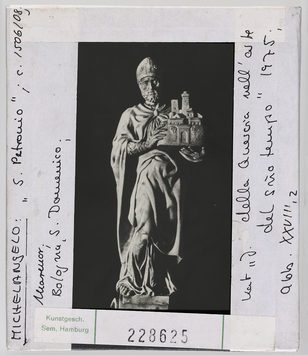 MICHELANGELO: "S. Petronio"; c. 1506/08;
Marmor,
Bologna, S. Domenico;
Kat "J. della Quercia nell'arte
del suo tempo" 1975,
Abb. XXVIII,2
Kunstgesch.
Sem. Hamburg
228625